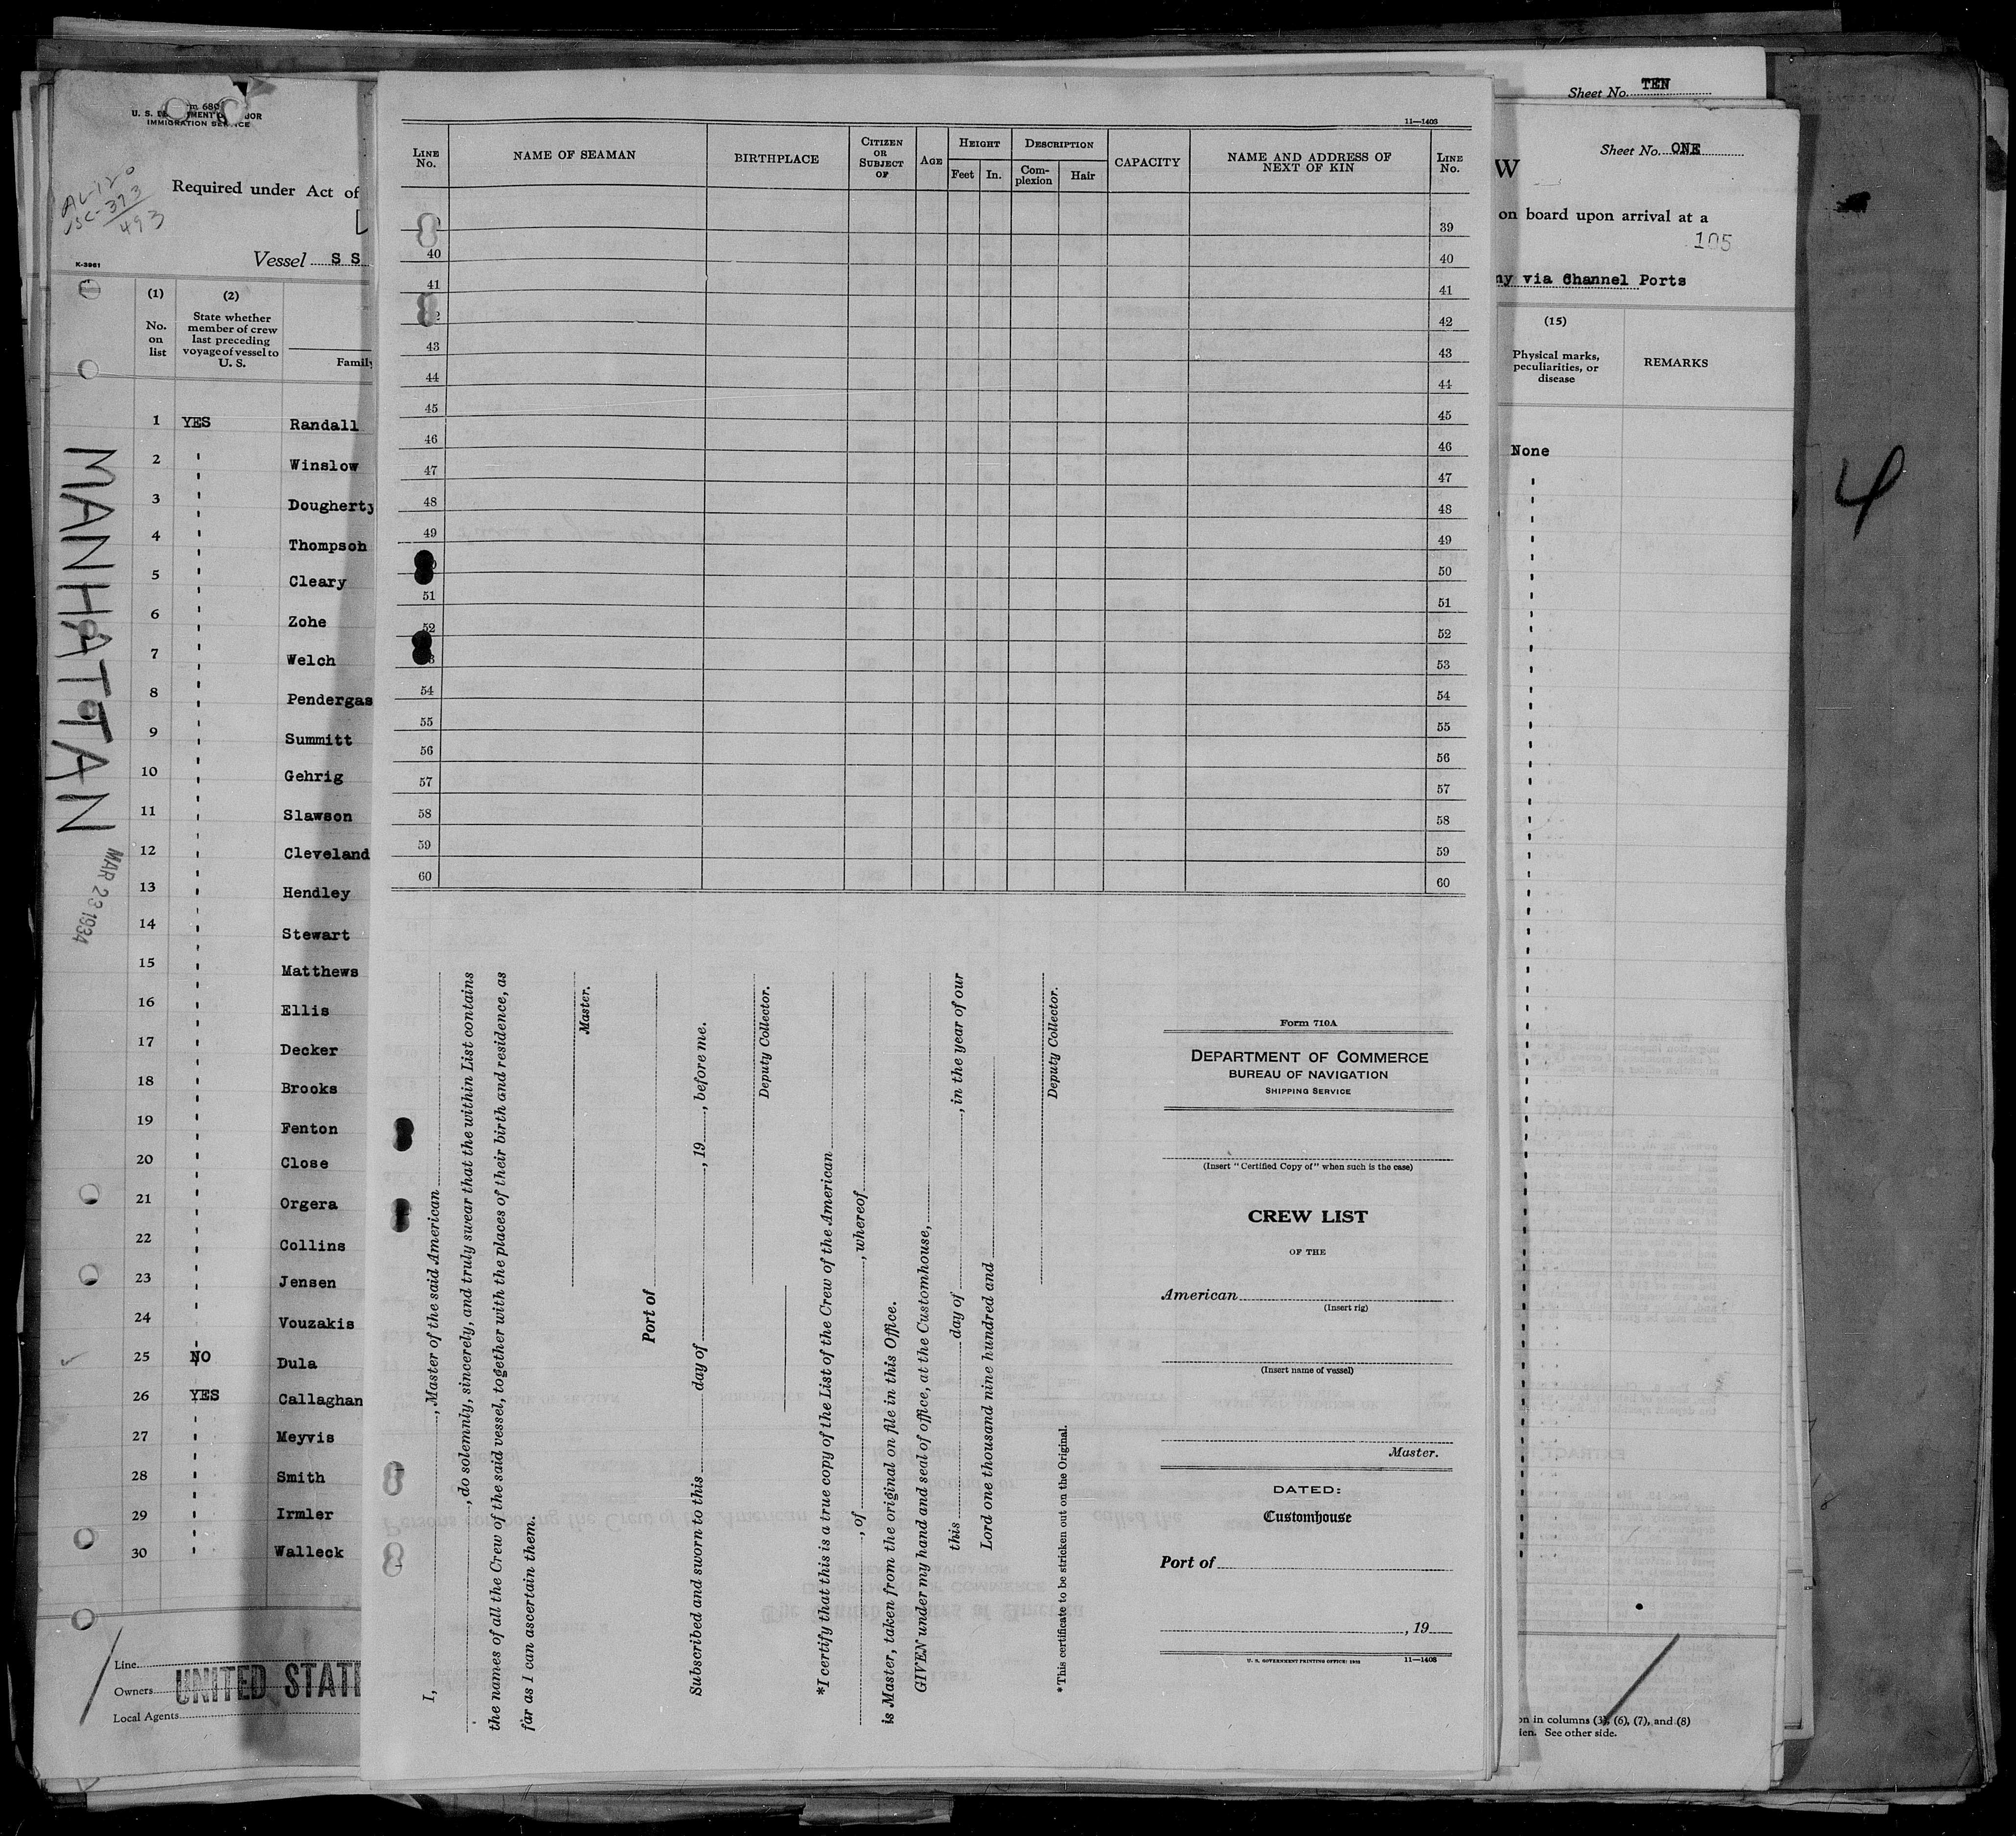 Form 680
U. S. DEPARTMENT OF LABOR
IMMIGRATION SERVICE
AL-120
USC-373
493
Required under Act of
Vessel S S
K-3961
(1)
No.
on
list
(2)
State whether
member of crew
last preceding
voyage of vessel to
U. S.
Family
1 YES Randall
2 " Winslow
3 " Dougherty
4 " Thompson
5 " Cleary
6 " Zohe
7 " Welch
8 " Pendergas
9 " Summitt
10 " Gehrig
11 " Slawson
12 " Cleveland
13 " Hendley
14 " Stewart
15 " Matthews
16 " Ellis
17 " Decker
18 " Brooks
19 " Fenton
20 " Close
21 " Orgera
22 " Collins
23 " Jensen
24 " Vouzakis
25 NO Dula
26 YES Callaghan
27 " Meyvis
28 " Smith
29 " Irmler
30 " Walleck
MANHATTAN
MAR 23 1934
Line
Owners UNITED STATE
Local Agents
11—1403
LINE No. NAME OF SEAMAN BIRTHPLACE CITIZEN OR SUBJECT OF AGE HEIGHT Feet In. DESCRIPTION Complexion Hair CAPACITY NAME AND ADDRESS OF NEXT OF KIN LINE No.
39
40 40
41 41
42
43 43
44 44
45 45
46 46
47 47
48 48
49 49
50
51 51
52 52
53
54 54
55 55
56 56
57 57
58 58
59 59
60 60
I, , Master of the said American
, do solemnly, sincerely, and truly swear that the within List contains
the names of all the Crew of the said vessel, together with the places of their birth and residence, as
far as I can ascertain them.
Master.
Port of
Subscribed and sworn to this day of , 19 , before me.
Deputy Collector.
*I certify that this is a true copy of the List of the Crew of the American
, of , whereof
is Master, taken from the original on file in this Office.
GIVEN under my hand and seal of office, at the Customhouse,
this day of , in the year of our
Lord one thousand nine hundred and
Deputy Collector.
*This certificate to be stricken out on the Original.
Form 710A
DEPARTMENT OF COMMERCE
BUREAU OF NAVIGATION
SHIPPING SERVICE
(Insert "Certified Copy of" when such is the case)
CREW LIST
OF THE
American
(Insert rig)
(Insert name of vessel)
Master.
DATED:
Customhouse
Port of
, 19
U. S. GOVERNMENT PRINTING OFFICE: 11—1403
Sheet No. TEN
Sheet No. ONE
W
on board upon arrival at a
105
ny via Channel Ports
(15)
Physical marks,
peculiarities, or
disease
REMARKS
None
on in columns (3), (6), (7), and (8)
ien. See other side.
4